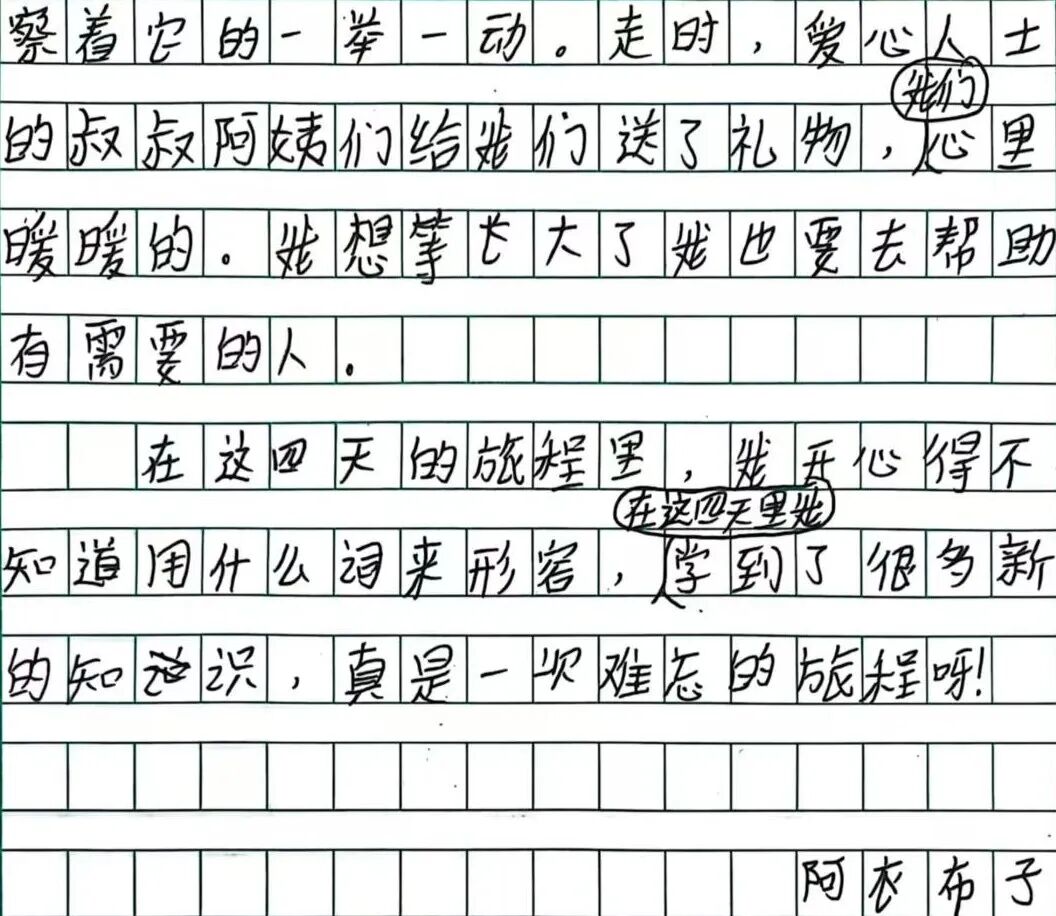 察着它的一举一动。走时，爱心人士
我们
的叔叔阿姨们给我们送了礼物，心里
暖暖的。我想等长大了我也要去帮助
有需要的人。
在这四天的旅程里，我开心得不
在这四天里我
知道用什么词来形容，学到了很多新
的知识，真是一次难忘的旅程呀！
阿衣布子